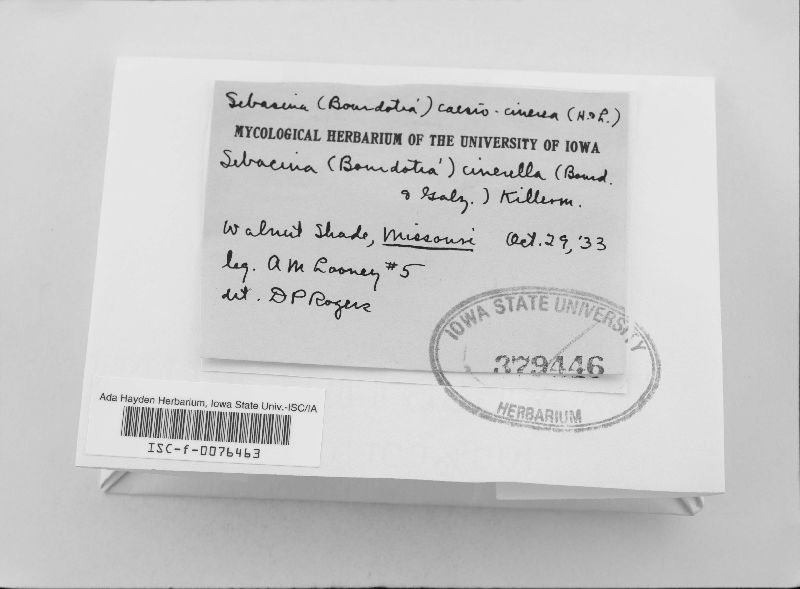 Sebacina (Bourdotia) caesio-cinerea (H. & L.)
MYCOLOGICAL HERBARIUM OF THE UNIVERSITY OF IOWA
Sebacina (Bourdotia) cinerella (Bourd.
& Galz.) Killerm.
Walnut Shade, Missouri Oct. 29, '33
leg. A M Looney #5
det. D P Rogers
IOWA STATE UNIVERSITY
379446
HERBARIUM
Ada Hayden Herbarium, Iowa State Univ.-ISC/IA
ISC-f-0076463